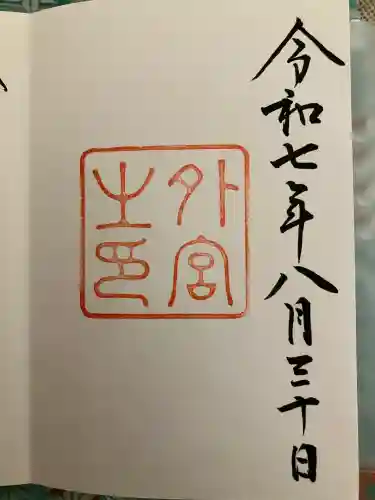 令和七年八月三十日
外宮
之印